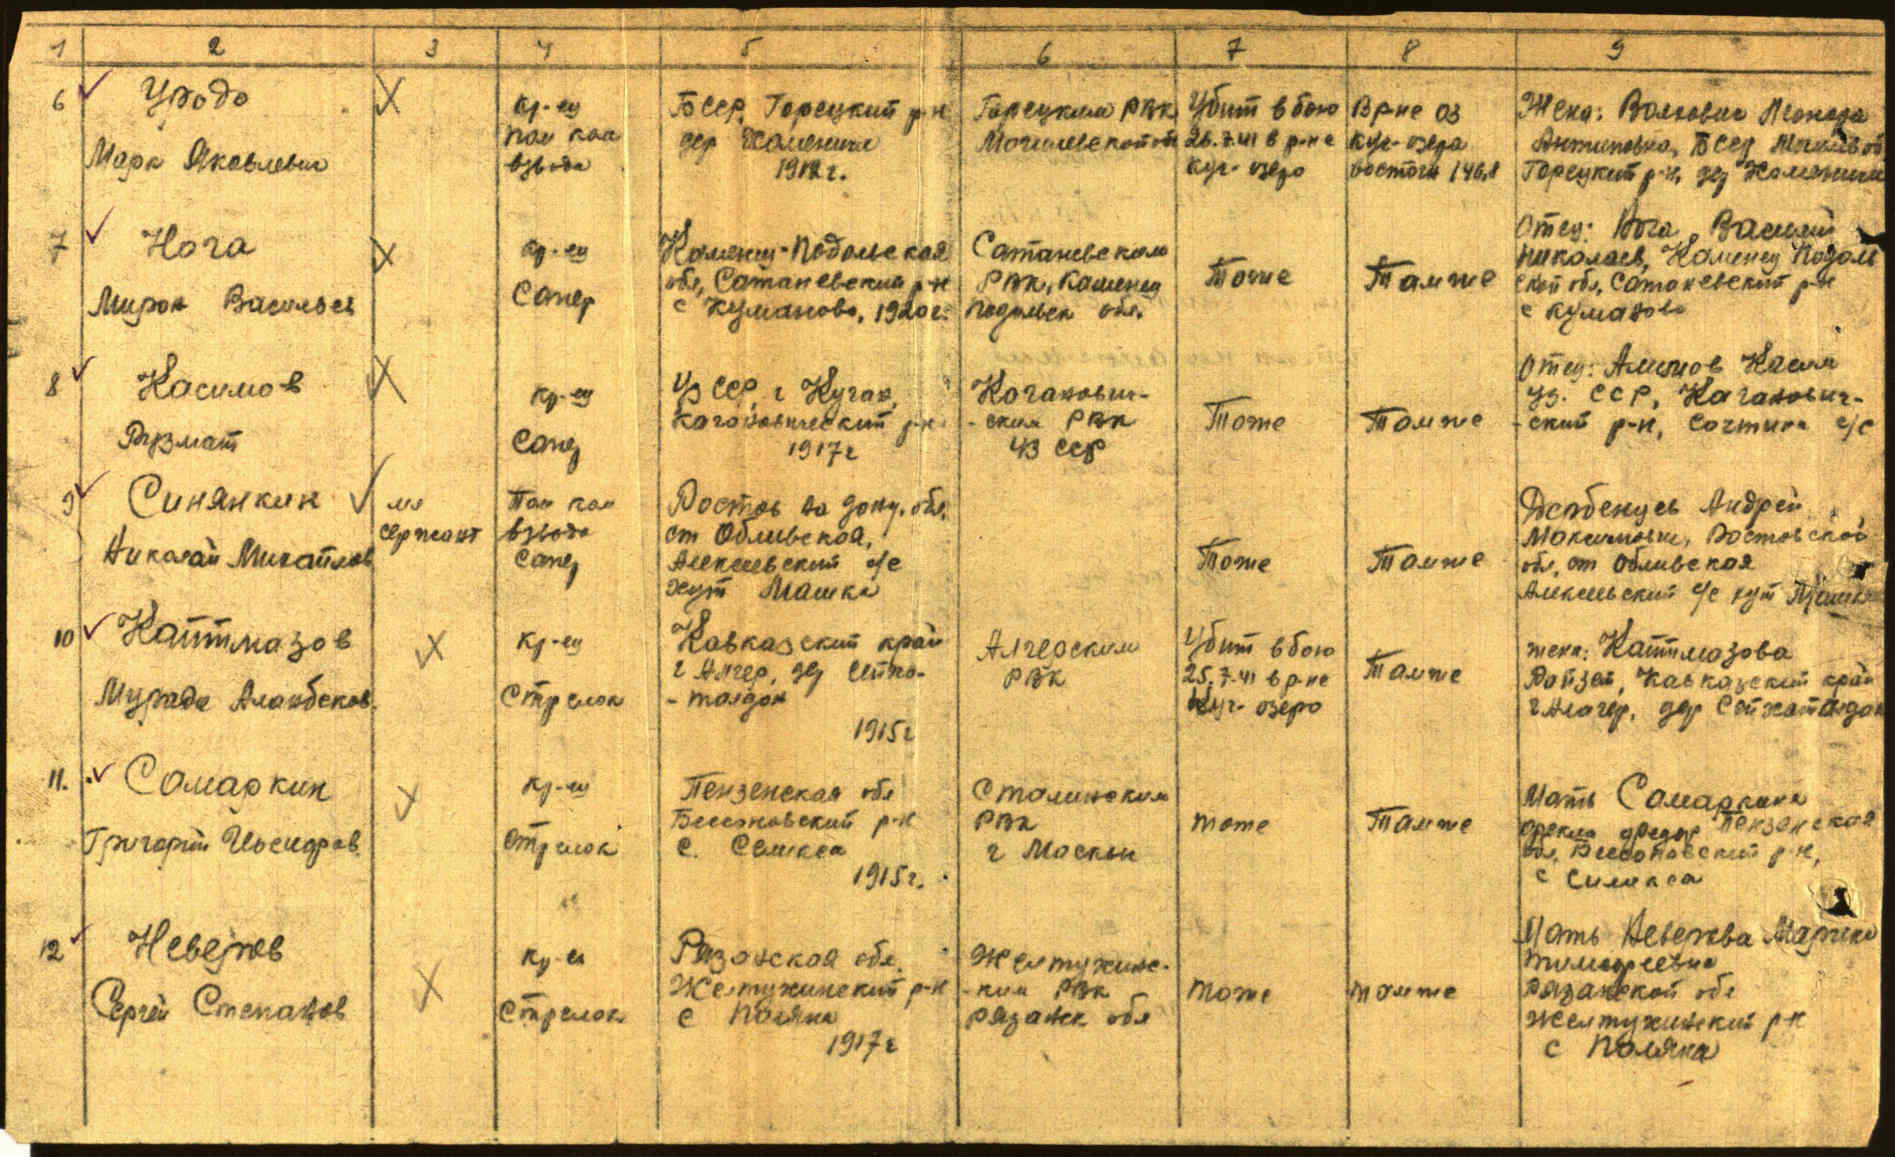 1 2 3 4 5 6 7 8 9
6 Уродо
Марк Яковлевич
кр-ец
пом ком
взвода
БССР, Горецкий р-н
дер Каменичи
1912 г.
Горецким РВК
Могилевской об
Убит в бою
26.7.41 в р-не
куг-озеро
В р-не оз
куг-озера
восточн 146,8
Жена: Волкович
Антиповна, БССР Могилев об
Горецкий р-н, дер Каменичи
7 Нога
Мирон Васильев
кр-ец
Сапер
Каменец-Подольская
обл, Сатаневский р-н
с Куманово, 1920 г.
Сатаневским
РВК, Каменец
Подольск обл.
Тоже
Тамже
Отец: Нога Василий
Николаев, Каменец Подоль
ской обл, Сатаневский р-н
с Куманово
8 Касимов
Рузмат
кр-ец
Сапер
Уз ССР, г Кучан,
Кагановический р-н
1917 г
Каганович-
-ским РВК
Уз ССР
Тоже
Тамже
Отец: Алимов Касим
Уз. ССР, Каганович-
-ский р-н, с/с
9 Синянкин
Николай Михайлов
мл
сержант
Пом ком
взвода
Сапер
Ростов на дону. обл,
ст Обливской,
Алексеевский с/с
хут Машка
Тоже
Тамже
Андрей
Максимович, Ростовской
обл, ст Обливская
Алексеевский с/с хут
10 Каттмазов
Мурадо Аланбеков
кр-ец
Стрелок
Кавказский край
г Алгер, дер
-толдон
1915 г
Алгерским
РВК
Убит в бою
25.7.41 в р-не
Куг-озеро
Тамже
жена: Каттмазова
Кавказский край
г Алагер, дер
11. Самаркин
Григорий Иосифов
кр-ец
стрелок
Пензенская обл
Бессоновский р-н
с. Селикса
1915 г.
Сталинским
РВК
г Москвы
тоже
Тамже
Мать Самаркина
Фекла Пензенская
обл, Бессоновский р-н,
с Селикса
12 Неверов
Сергей Степанов
кр-ец
Стрелок
Рязанская обл
Желтухинский р-н
с Поляна
1917 г
Желтухинс-
-ким РВК
Рязанск обл
тоже
тамже
Мать Неверова
Тимофеевна
Рязанской обл
Желтухинский р-н
с Поляна